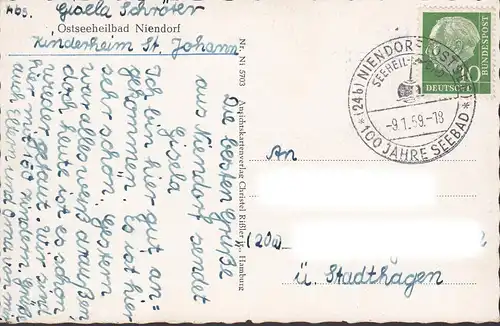 Abs. Gisela Schröter
Ostseeheilbad Niendorf
Kinderheim St. Johann
Die besten Grüße
aus Niendorf sendet
Gisela
Ich bin hier gut an-
gekommen. Es ist hier
sehr schön. Gestern
war alles weiß draußen,
doch heute ist es schon
wieder getaut. Wir sind
hier mit 50 Kindern. Grüßt
auch Eltern und Oma von mir
Nr. Ni 5703 Ansichtskartenverlag Christel Rißler K., Hamburg
(24b) NIENDORF (OSTSEE)
SEEHEIL-
-9.1.59.-18
* 100 JAHRE SEEBAD *
DEUTSCHE BUNDESPOST
10
An
(20a)
ü. Stadthagen